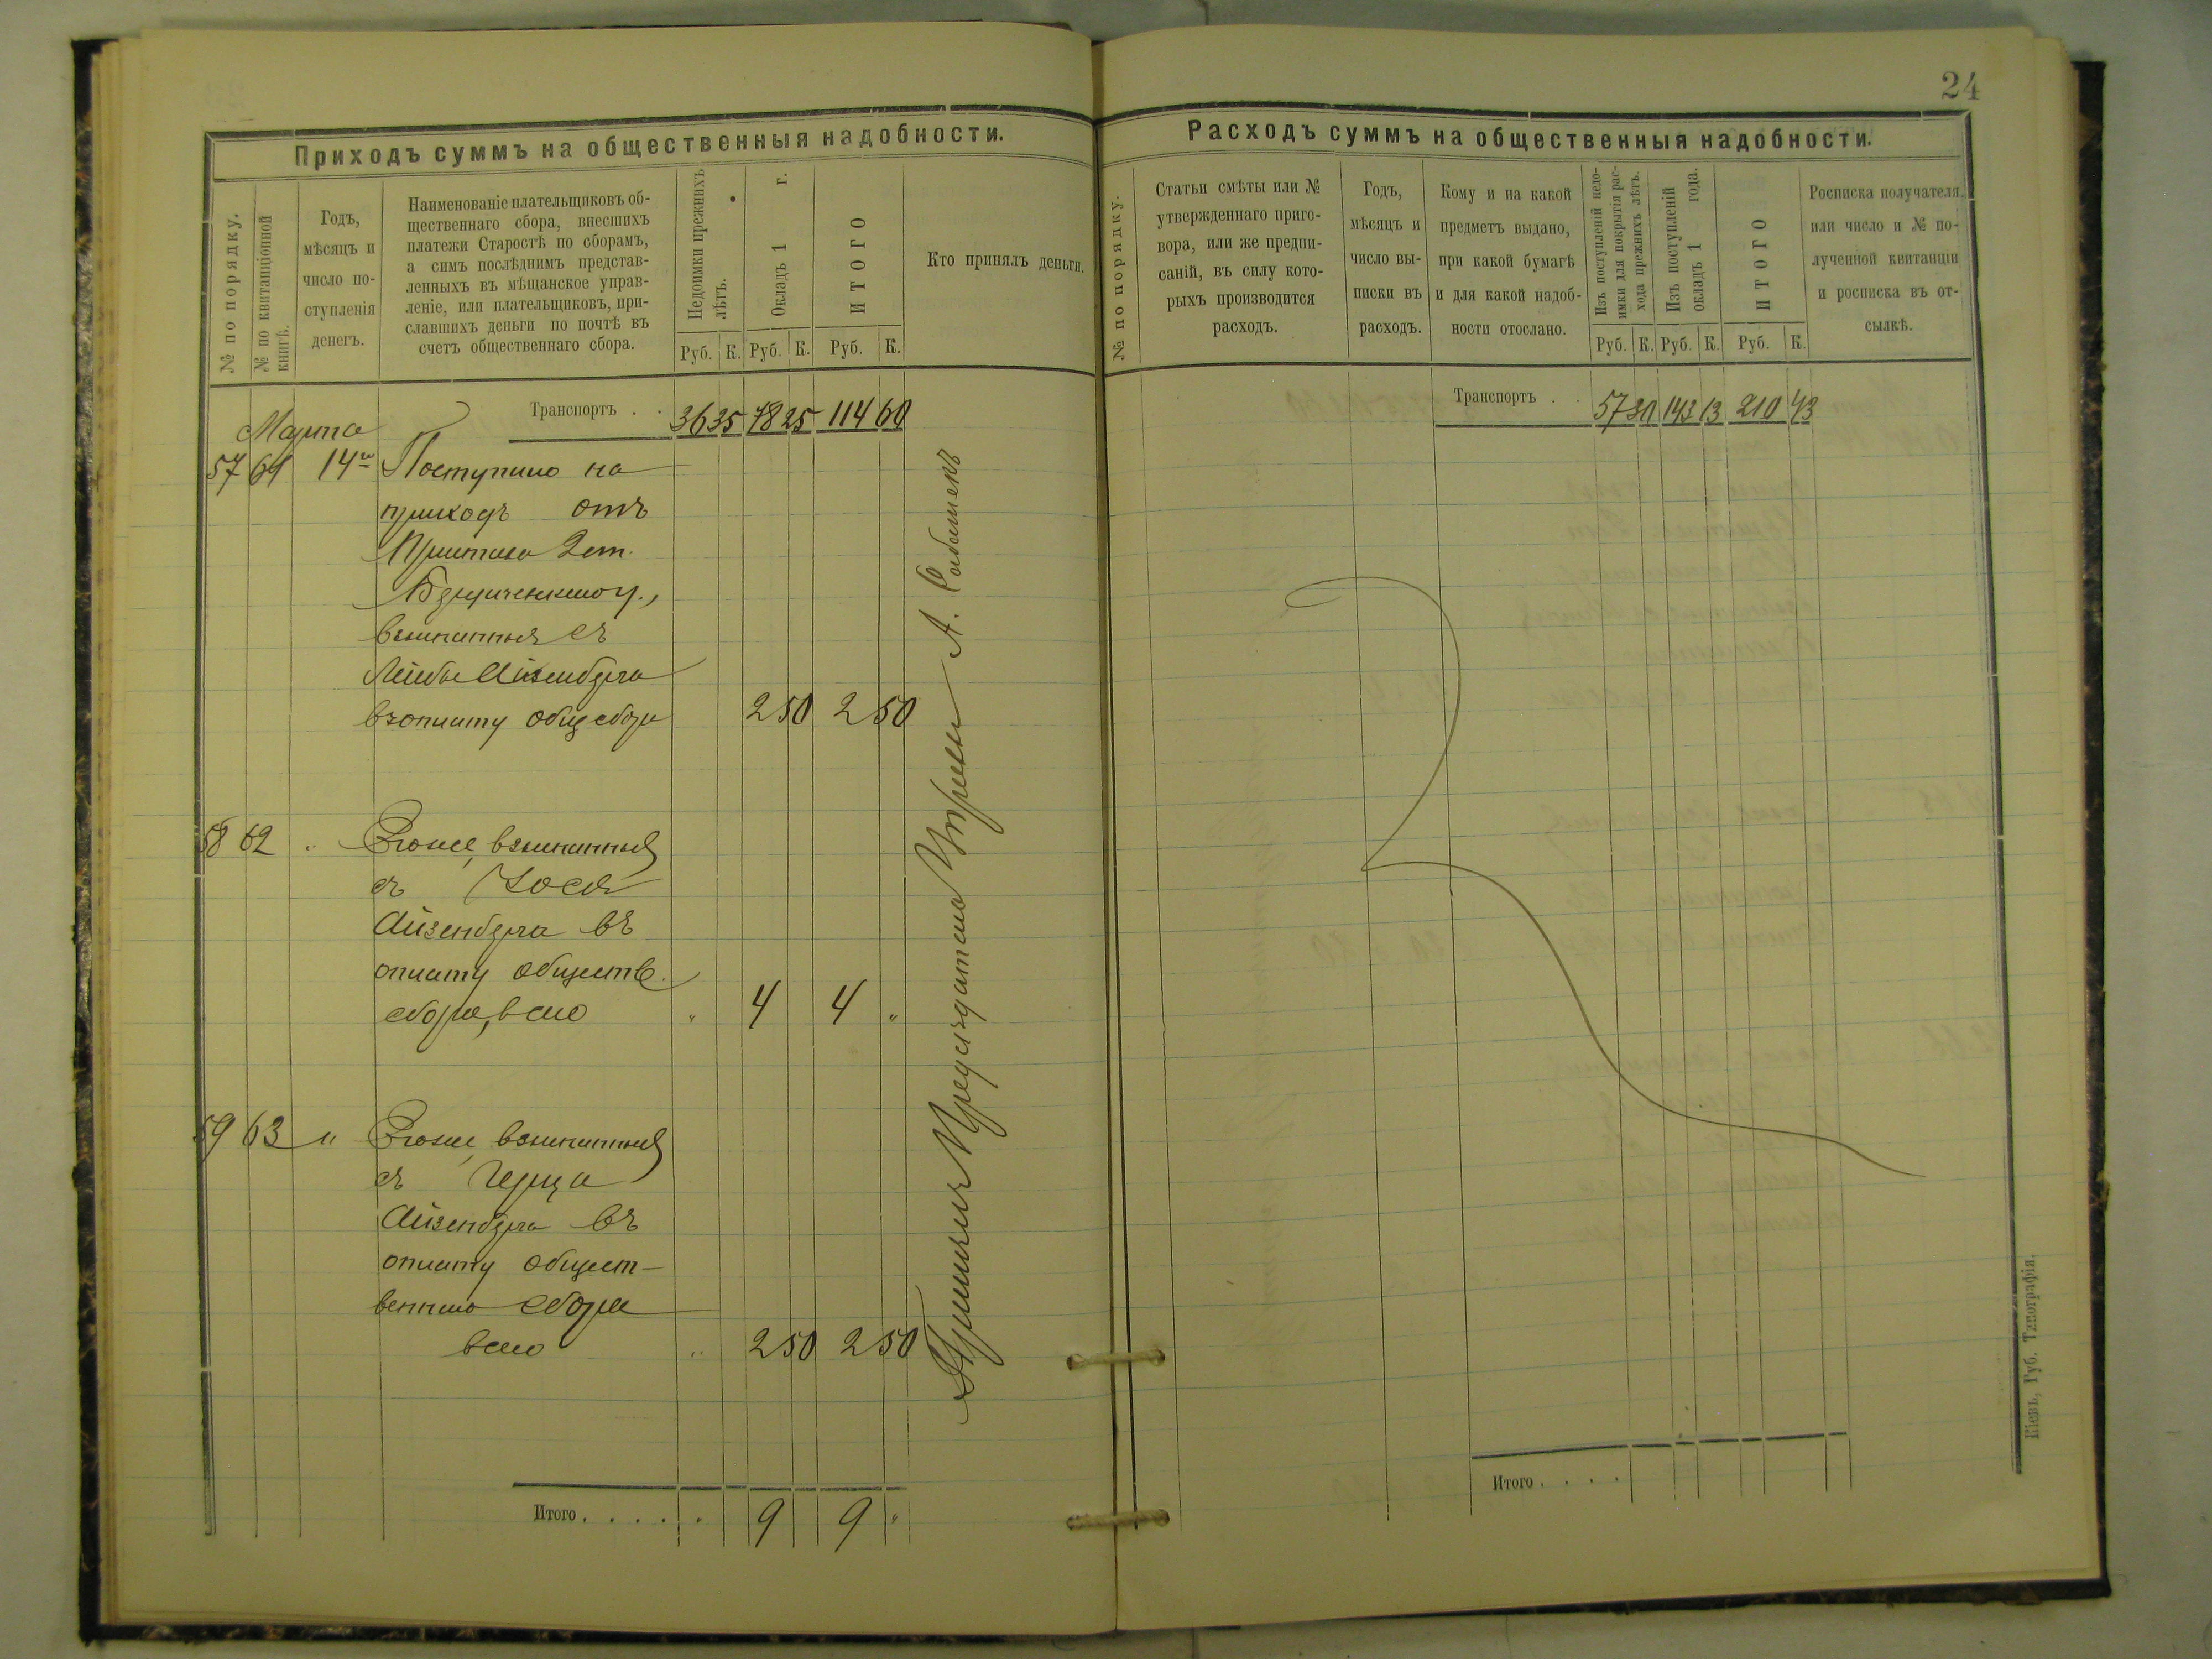 24
Приходъ суммъ на общественныя надобности.
№ по порядку.
№ по квитанціонной
книгѣ.
Годъ,
мѣсяцъ и
число по-
ступленія
денегъ.
Наименованіе плательщиковъ об-
щественнаго сбора, внесшихъ
платежи Старостѣ по сборамъ,
а симъ послѣднимъ представ-
ленныхъ въ мѣщанское управ-
леніе, или плательщиковъ, при-
славшихъ деньги по почтѣ въ
счетъ общественнаго сбора.
Недоимки прежнихъ
лѣтъ.
Окладъ 1 г.
ИТОГО
Кто принялъ деньги.
Руб. К. Руб. К. Руб. К.
Транспортъ . . 36 35 78 25 114 60
Марта
57 61 14го Поступило на
приходъ отъ
Пристава 2 ст.
взысканныя съ
Лейбы Айзенберга
въ оплату общ сбора 2 50 2 50
58 62 " Тоже, взысканныя
съ Іося
Айзенберга въ
оплату обществ.
сбора, всего " 4 4 "
59 63 " Тоже, взысканныя
съ Герца
Айзенберга въ
оплату общест-
веннаго сбора
всего " 2 50 2 50
Итого . . . . . 9 9 "
Предсѣдатель Управы А.
Расходъ суммъ на общественныя надобности.
№ по порядку.
Статьи смѣты или №
утвержденнаго приго-
вора, или же предпи-
саній, въ силу кото-
рыхъ производится
расходъ.
Годъ,
мѣсяцъ и
число вы-
писки въ
расходъ.
Кому и на какой
предметъ выдано,
при какой бумагѣ
и для какой надоб-
ности отослано.
Изъ поступленій недо-
имки для покрытія рас-
хода прежнихъ лѣтъ.
Изъ поступленій
окладъ 1 года.
ИТОГО
Росписка получателя.
или число и № по-
лученной квитанціи
и росписка въ от-
сылкѣ.
Руб. К. Руб. К. Руб. К.
Транспортъ . . 57 30 143 13 210 43
Итого . . . .
Кіевъ, Губ. Типографія.